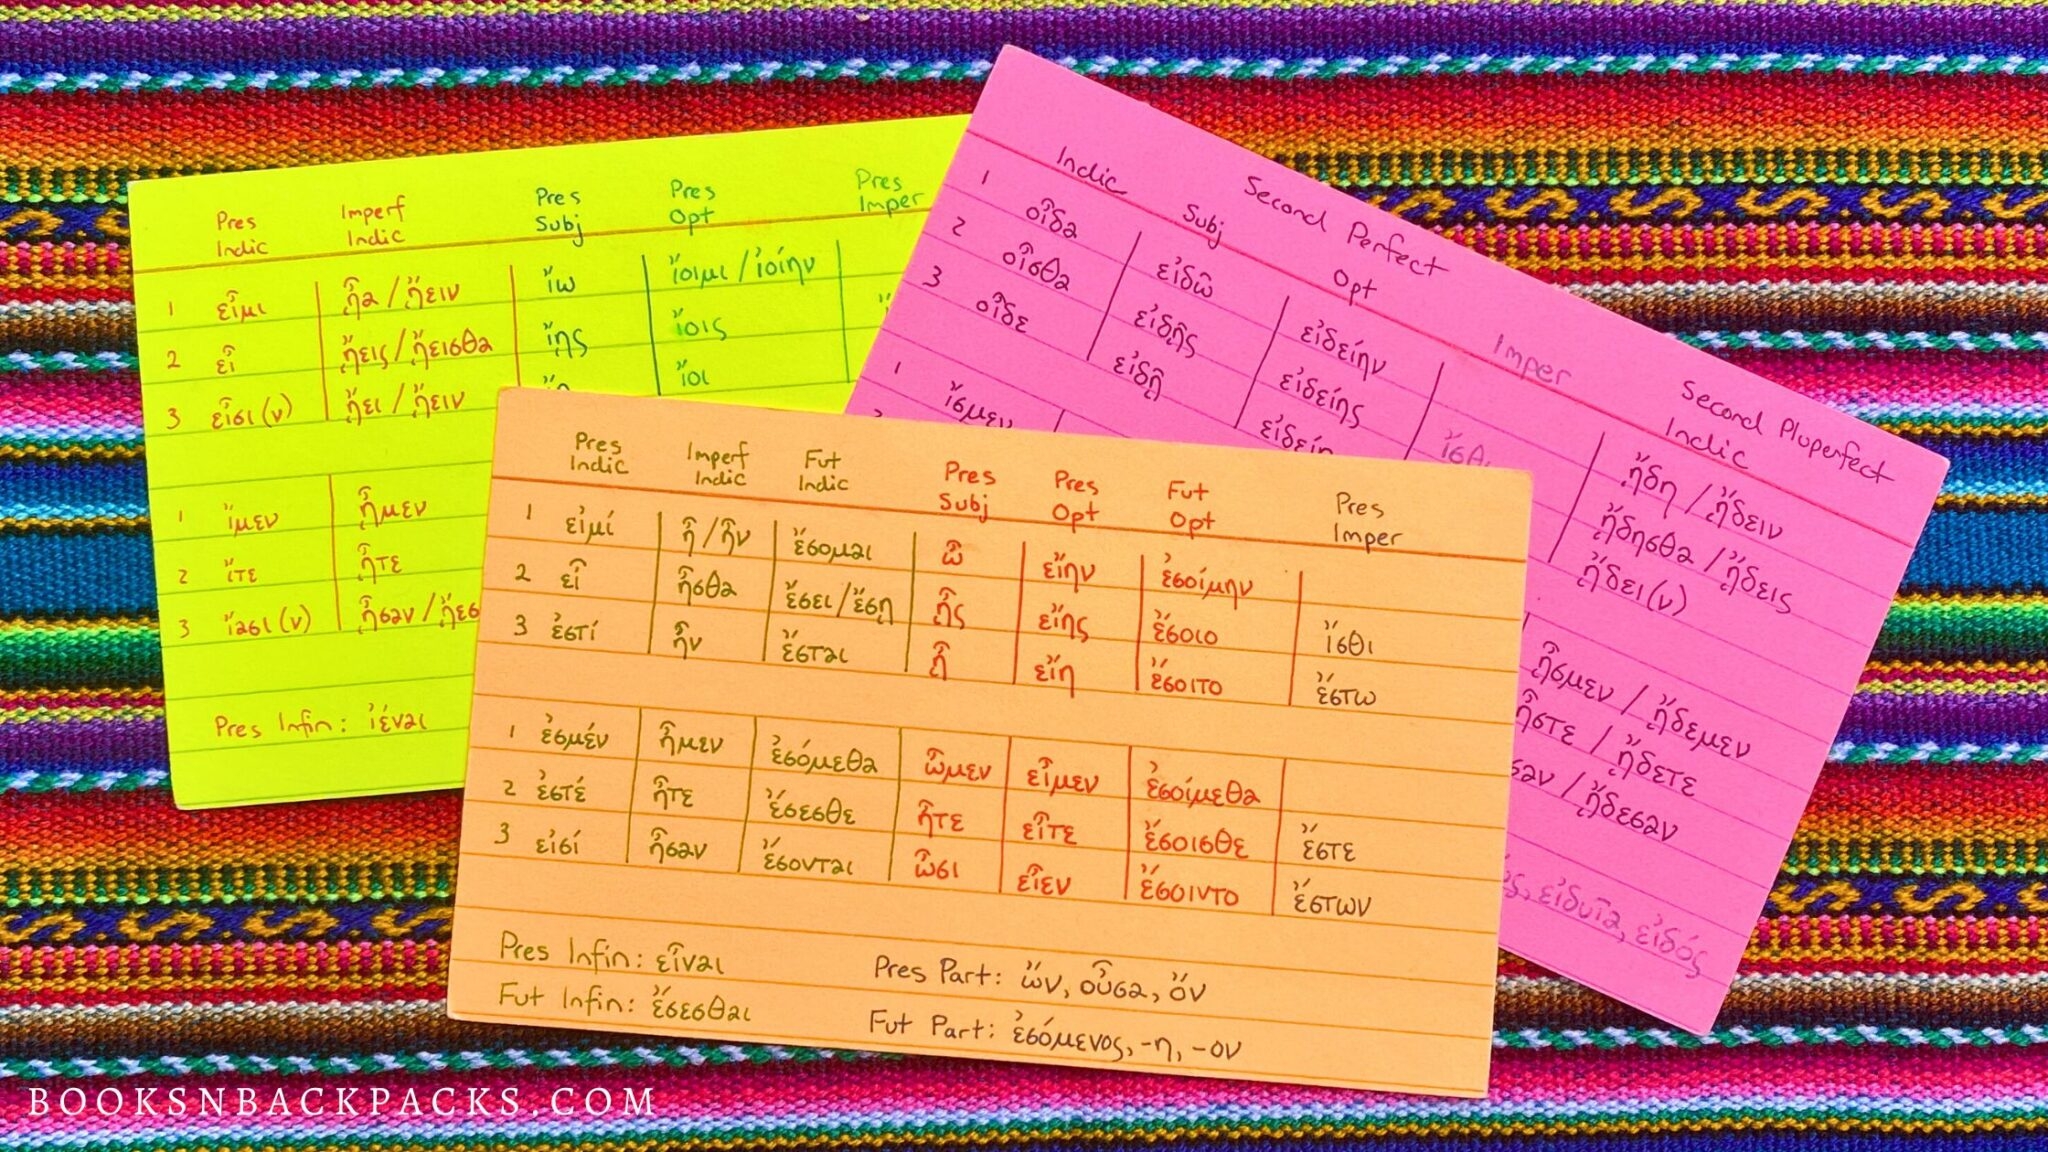 Pres Indic Imperf Indic Pres Subj Pres Opt Pres Imper
1 εἶμι ᾖα / ᾔειν ἴω ἴοιμι / ἰοίην
2 εἶ ᾔεις / ᾔεισθα ἴῃς ἴοις
3 εἶσι(ν) ᾔει / ᾔειν ἴοι
1 ἴμεν ᾖμεν
2 ἴτε ᾖτε
3 ἴασι(ν) ᾖσαν /
Pres Infin: ἰέναι
Second Perfect Second Pluperfect
Indic Subj Opt Imper Indic
1 οἶδα εἰδῶ εἰδείην ᾔδη / ᾔδειν
2 οἶσθα εἰδῇς εἰδείης ᾔδησθα / ᾔδεις
3 οἶδε εἰδῇ ᾔδει(ν)
1 ἴσμεν ᾖσμεν / ᾔδεμεν
ᾖστε / ᾔδετε
/ ᾔδεσαν
εἰδυῖα, εἰδός
Pres Indic Imperf Indic Fut Indic Pres Subj Pres Opt Fut Opt Pres Imper
1 εἰμί ἦ / ἦν ἔσομαι ὦ εἴην ἐσοίμην
2 εἶ ἦσθα ἔσει / ἔσῃ ᾖς εἴης ἔσοιο ἴσθι
3 ἐστί ἦν ἔσται ᾖ εἴη ἔσοιτο ἔστω
1 ἐσμέν ἦμεν ἐσόμεθα ὦμεν εἶμεν ἐσοίμεθα
2 ἐστέ ἦτε ἔσεσθε ἦτε εἶτε ἔσοισθε ἔστε
3 εἰσί ἦσαν ἔσονται ὦσι εἶεν ἔσοιντο ἔστων
Pres Infin: εἶναι Pres Part: ὤν, οὖσα, ὄν
Fut Infin: ἔσεσθαι Fut Part: ἐσόμενος, -η, -ον
BOOKSNBACKPACKS.COM